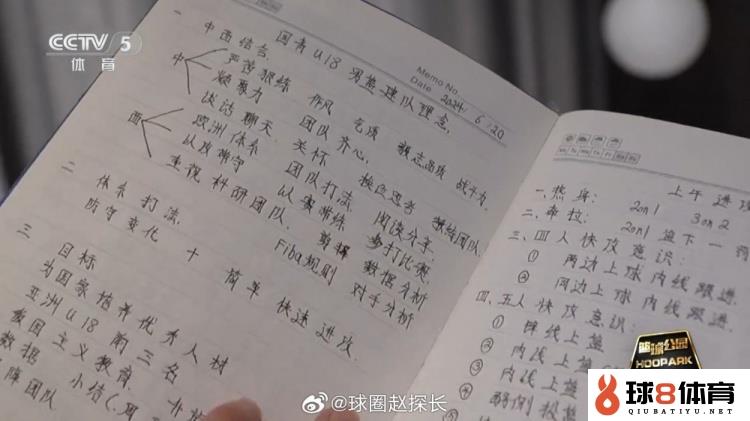 CCTV 5
体育
国青U18男篮建队理念.
Memo No.
Date 2024 / 6 / 20
一 中西结合.
中
严苦狠练 作风 气质 意志品质 战斗力.
凝聚力 团队齐心.
谈话 聊天 关怀
西
欧洲体系 团队打法. 独立思考
以攻带守 以赛带练 阅读分享.
重视 科研团队. 剪辑 多打比赛.
数据分析
Fiba规则 对手分析
二 体系打法.
防守变化 + 简单 快速进攻.
三 目标
为国家培养优秀人材
亚洲U18前三名
爱国主义教育.
数据 小结
团队
上午
一. 热身:
2on1 3on2
2on1 篮下一
三. 四人快攻意识:
① 两边上球内线跟进.
② 同边上球内线跟进.
四. 五人快攻意识:
①
② 内线上篮
③ 内线上篮
④
篮球公园
HOOPARK
@球圈赵探长
球8体育
QIUBATIYU.NET